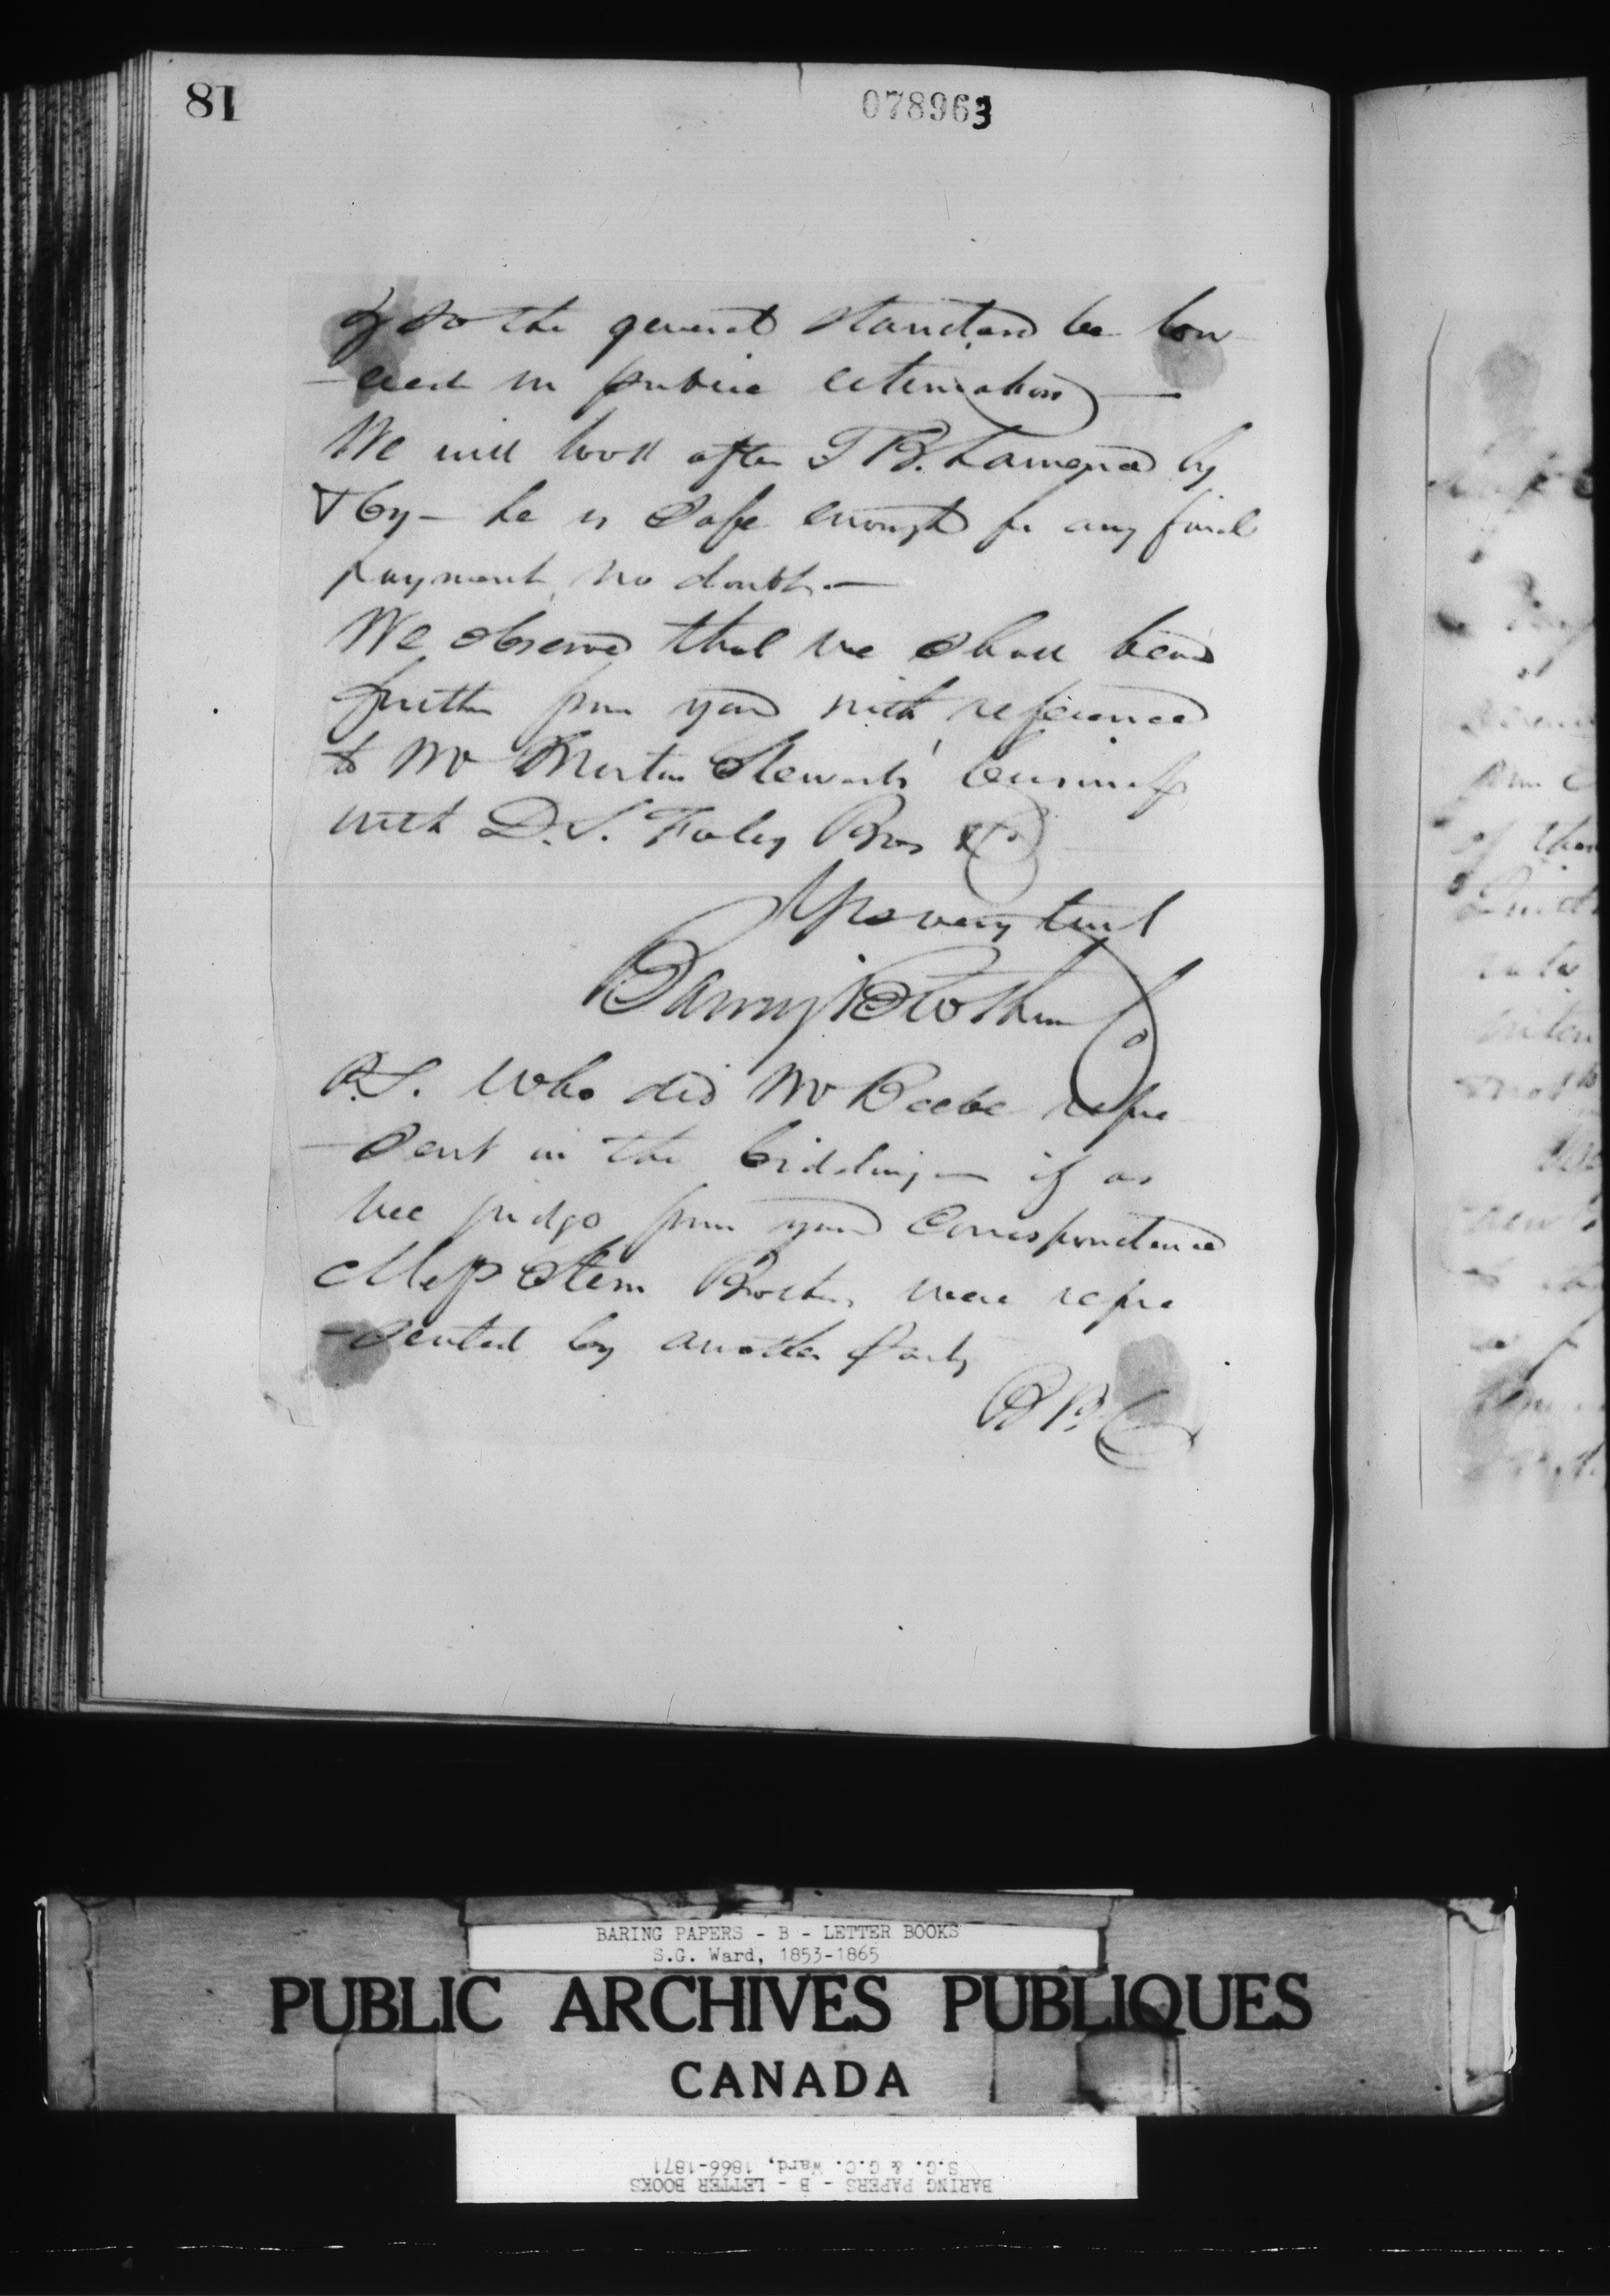 81
078963
so the general standard be low
-ered in public estimation —
We will look after T B. by
& by – he is safe enough for any final
payment, no doubt. —
We observe that we shall hear
further from you with reference
to Mr Stewarts' business
with D. S. Bros & Co
Yrs very truly
Baring Brothers Co
P.S. Who did Mr Beebe repre
-sent in the bidding — if as
we judge from your correspondence
Mess Stern Brothers were repre
-sented by another party
B B Co
BARING PAPERS - B - LETTER BOOKS
S.G. Ward, 1853-1865
PUBLIC ARCHIVES PUBLIQUES
CANADA
BARING PAPERS - B - LETTER BOOKS
S.G. & G.C. Ward, 1866-1871